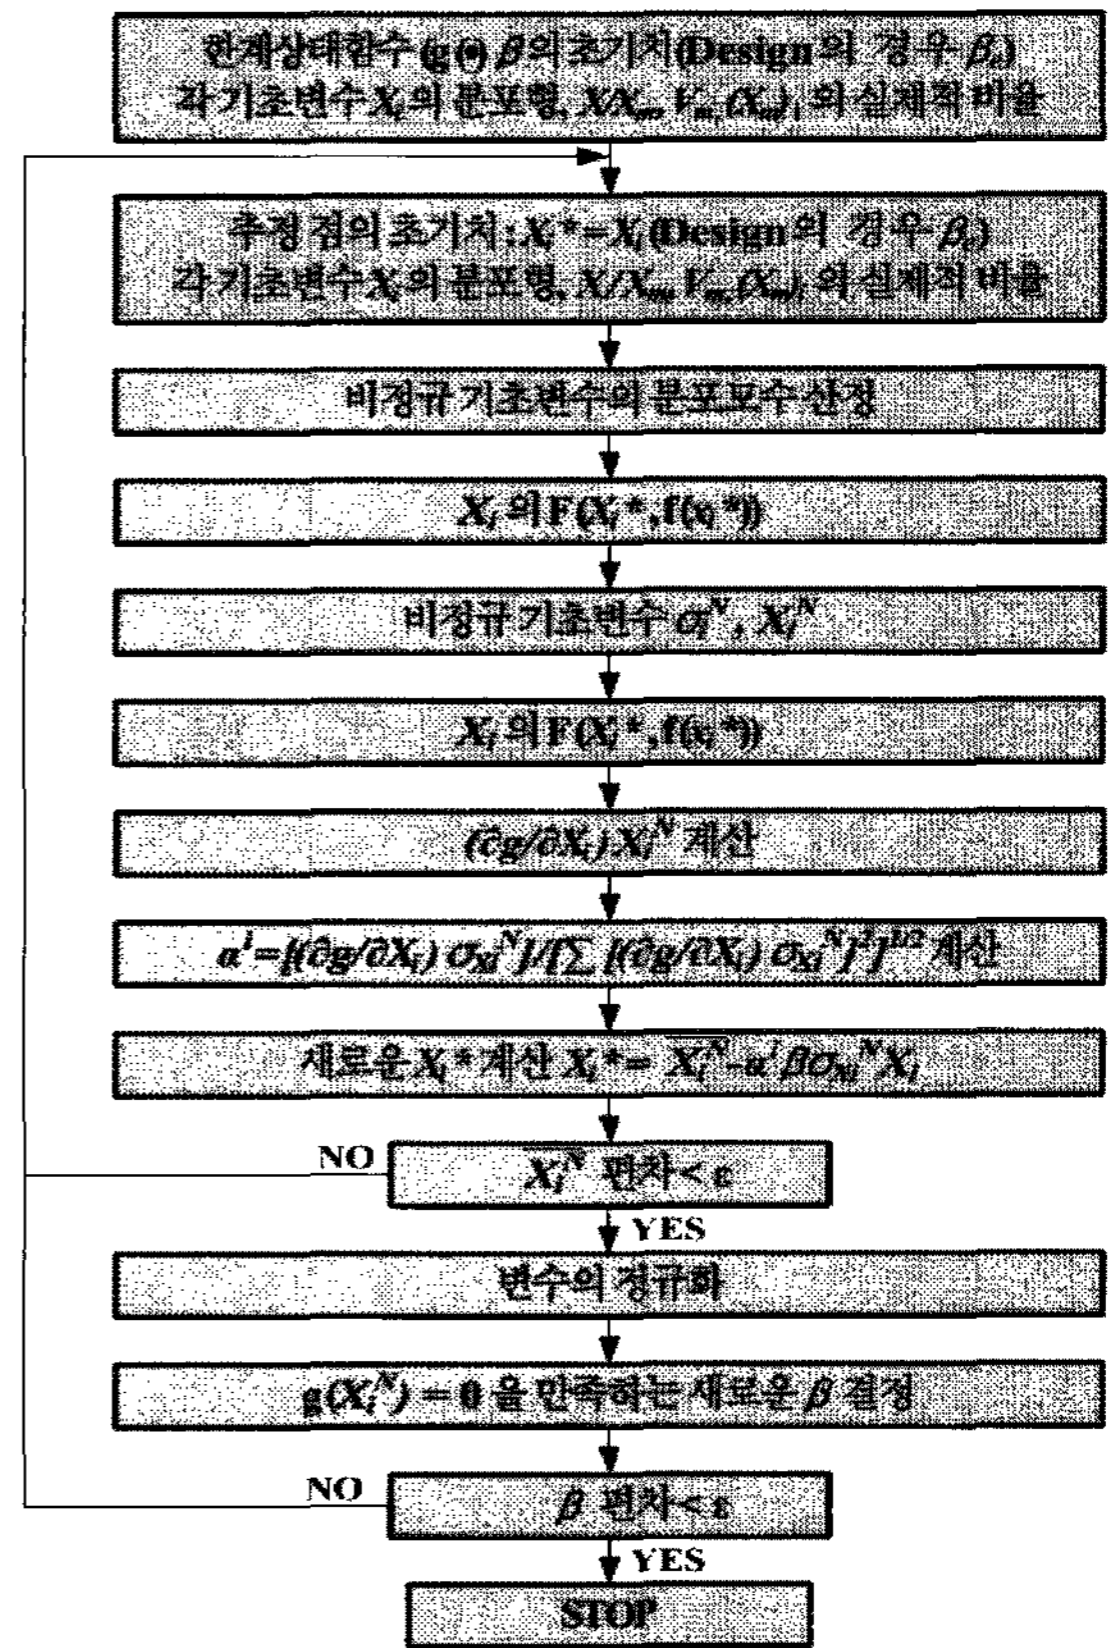 한계상태함수(g(•) β의 초기치(Design의 경우 βₒ)
각 기초변수 Xᵢ의 분포형, X/Xₘ, Vₘ, (Xₘ)ᵢ의 실제적 비율
추정 점의 초기치 : Xᵢ*=Xᵢ(Design의 경우 βₒ)
각 기초변수 Xᵢ의 분포형, X/Xₘ, Vₘ, (Xₘ)ᵢ의 실제적 비율
비정규 기초변수의 분포모수 산정
Xᵢ의 F(Xᵢ*, f(xᵢ*))
비정규 기초변수 σᵢᴺ, Xᵢᴺ
Xᵢ의 F(Xᵢ*, f(xᵢ*))
(∂g/∂Xᵢ) Xᵢᴺ 계산
αⁱ=[(∂g/∂Xᵢ) σXᵢᴺ]/[∑ [(∂g/∂Xᵢ) σXᵢᴺ]²]¹/² 계산
새로운 Xᵢ* 계산 Xᵢ*= X̅ᵢᴺ-αⁱβσXᵢᴺXᵢ
NO
X̅ᵢᴺ 편차 < ε
YES
변수의 정규화
g(Xᵢᴺ) = 0 을 만족하는 새로운 β 결정
NO
β 편차 < ε
YES
STOP